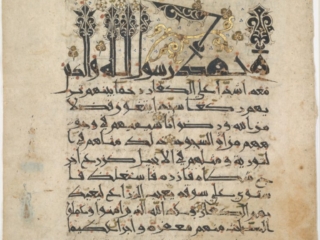 محمد رسول الله والذين
معه اشدا على الكفار رحما بينهم تر
يهم ركعا سجدا يبتغون فضلا
من الله ورضونا سيميهم في وجو
ههم من اثر السجود ذلك مثلهم في ا
لتورية ومثلهم في الانجيل كزرع اخر
ج شطاه فازره فاستغلظ فا
ستوى على سوقه يعجب الزراع ليغيظ
بهم الكفار وعد الله الذين امنوا وعملوا
الصلحت منهم مغفرة واجرا عظيما